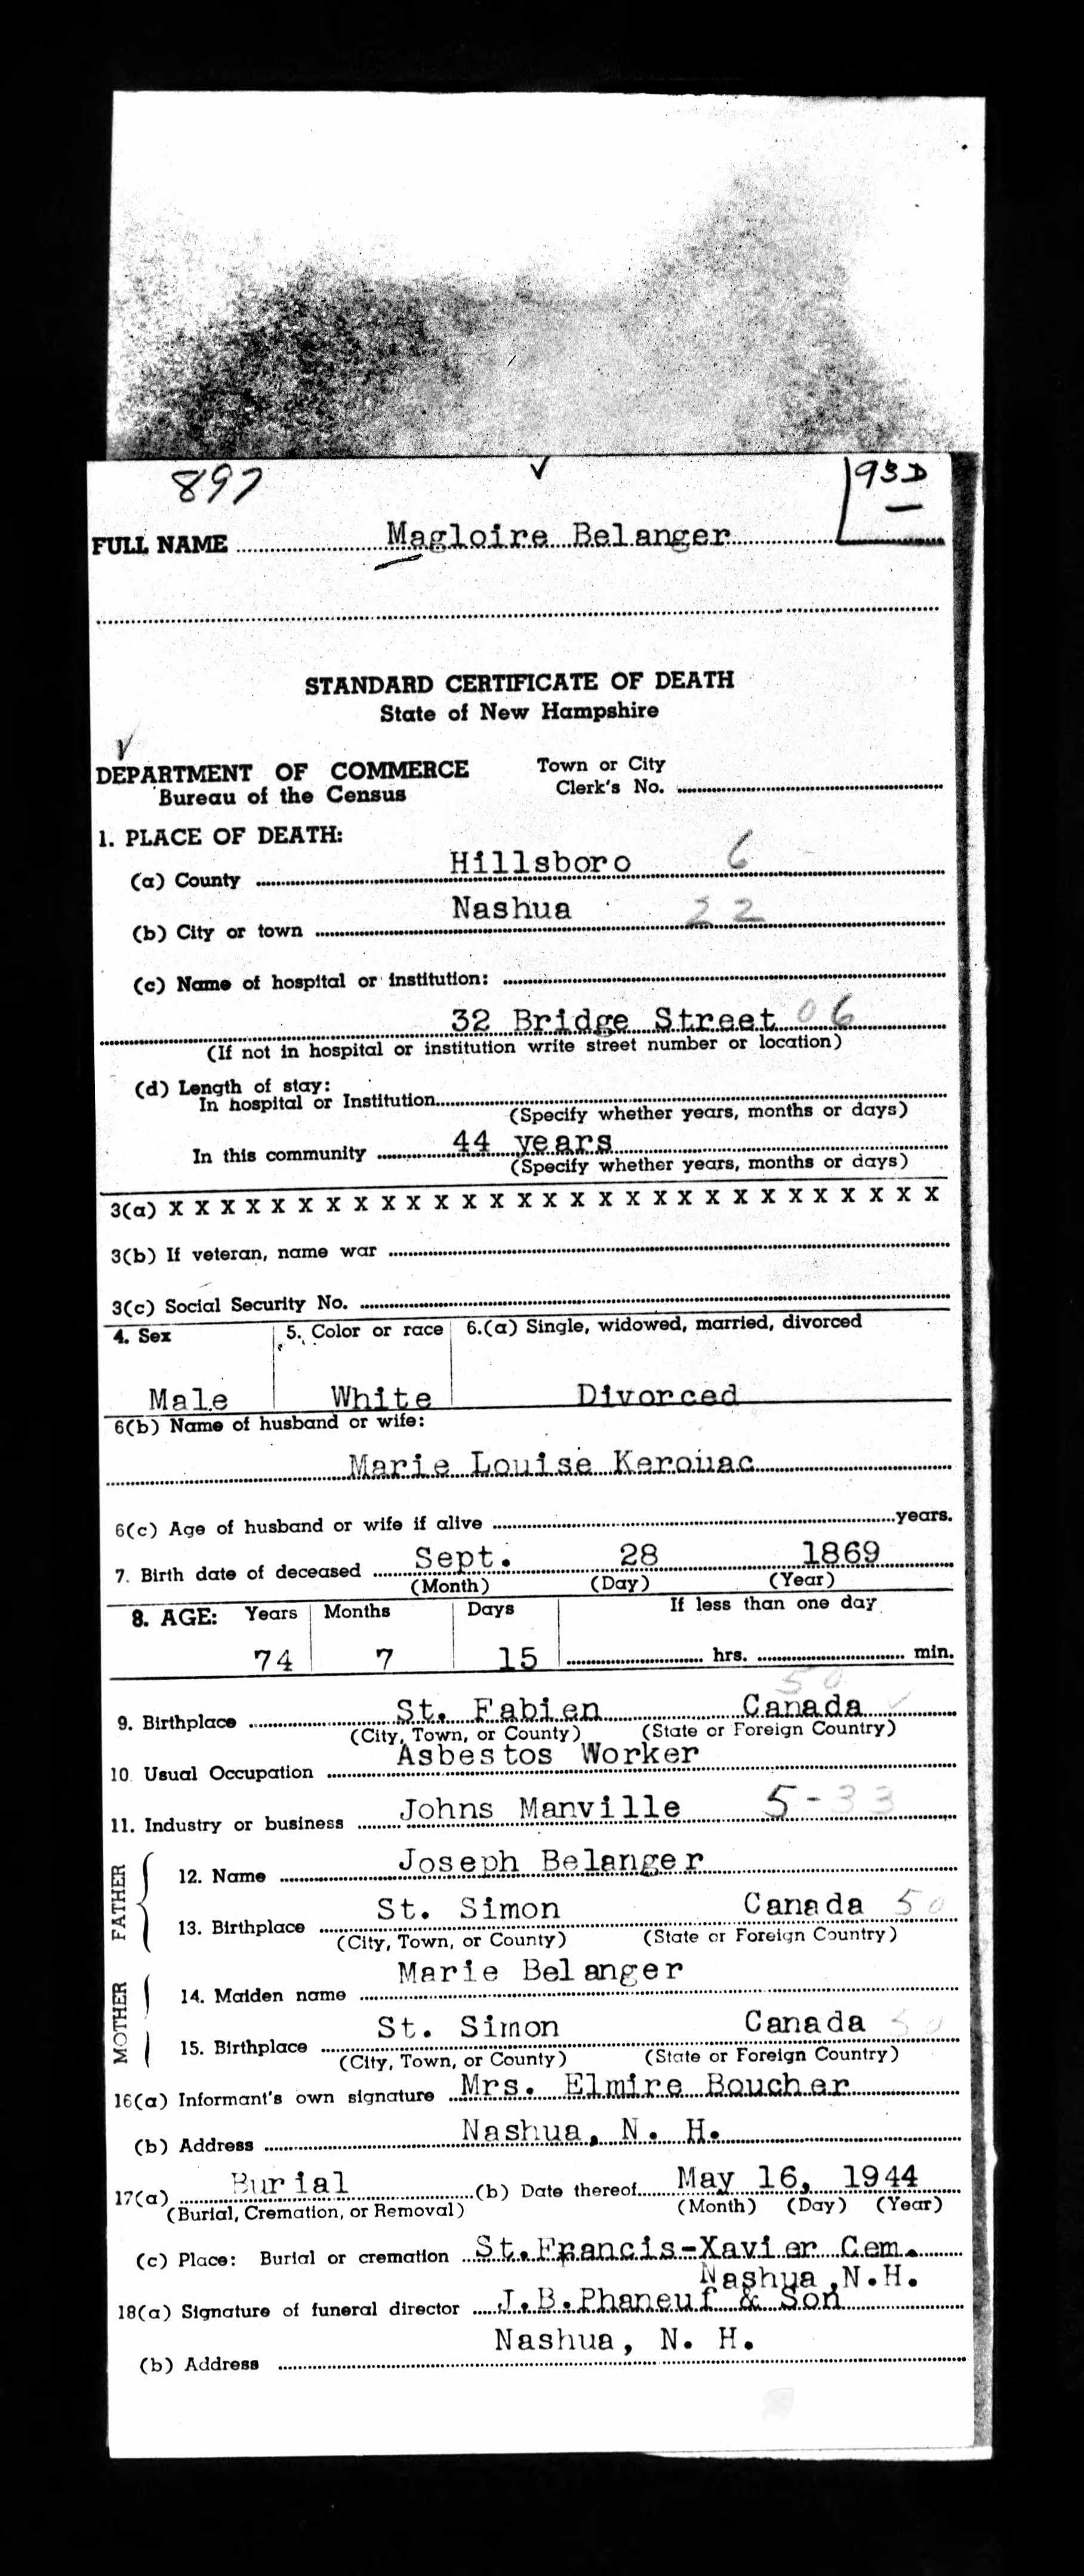 897 ✓ 93D
FULL NAME Magloire Belanger
STANDARD CERTIFICATE OF DEATH
State of New Hampshire
DEPARTMENT OF COMMERCE Town or City
Bureau of the Census Clerk's No.
1. PLACE OF DEATH:
(a) County Hillsboro 6
(b) City or town Nashua 22
(c) Name of hospital or institution:
32 Bridge Street 06
(If not in hospital or institution write street number or location)
(d) Length of stay:
In hospital or Institution
(Specify whether years, months or days)
In this community 44 years
(Specify whether years, months or days)
3(a) X X X X X X X X X X X X X X X X X X X X X X X X X X X X X
3(b) If veteran, name war
3(c) Social Security No.
4. Sex 5. Color or race 6.(a) Single, widowed, married, divorced
Male White Divorced
6(b) Name of husband or wife:
Marie Louise Kerouac
6(c) Age of husband or wife if alive years.
7. Birth date of deceased Sept. 28 1869
(Month) (Day) (Year)
8. AGE: Years Months Days If less than one day
74 7 15 hrs. min.
50
9. Birthplace St. Fabien Canada ✓
(City, Town, or County) (State or Foreign Country)
10. Usual Occupation Asbestos Worker
11. Industry or business Johns Manville 5-33
FATHER
12. Name Joseph Belanger
13. Birthplace St. Simon Canada 50
(City, Town, or County) (State or Foreign Country)
MOTHER
14. Maiden name Marie Belanger
15. Birthplace St. Simon Canada 50
(City, Town, or County) (State or Foreign Country)
16(a) Informant's own signature Mrs. Elmire Boucher
(b) Address Nashua, N. H.
17(a) Burial (b) Date thereof May 16, 1944
(Burial, Cremation, or Removal) (Month) (Day) (Year)
(c) Place: Burial or cremation St.Francis-Xavier Cem.
Nashua, N.H.
18(a) Signature of funeral director J.B.Phaneuf & Son
Nashua, N. H.
(b) Address